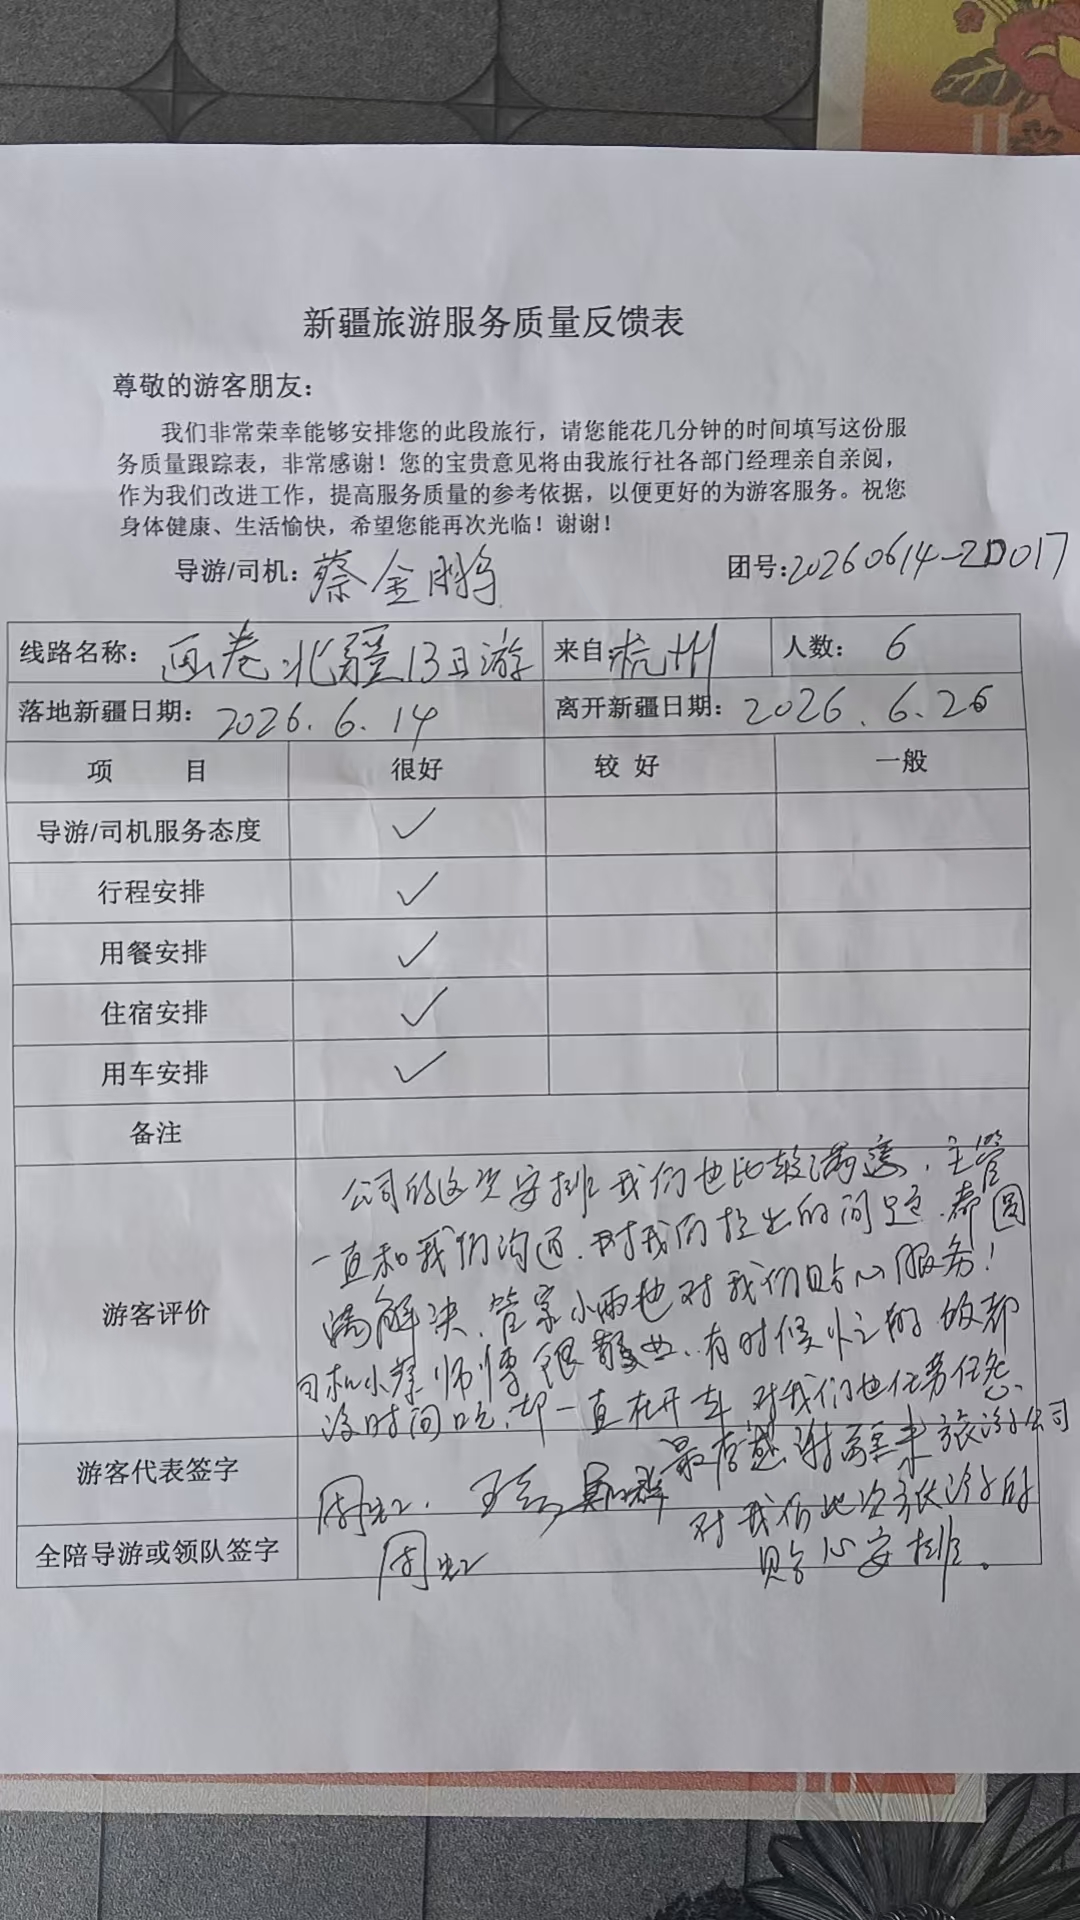 新疆旅游服务质量反馈表
尊敬的游客朋友：
我们非常荣幸能够安排您的此段旅行，请您能花几分钟的时间填写这份服
务质量跟踪表，非常感谢！您的宝贵意见将由我旅行社各部门经理亲自亲阅，
作为我们改进工作，提高服务质量的参考依据，以便更好的为游客服务。祝您
身体健康、生活愉快，希望您能再次光临！谢谢！
导游/司机：蔡金鹏 团号：20260614-2D017
线路名称：画卷北疆13日游 来自：杭州 人数：6
落地新疆日期：2026.6.14 离开新疆日期：2026.6.26
项 目 很好 较 好 一般
导游/司机服务态度 ✓
行程安排 ✓
用餐安排 ✓
住宿安排 ✓
用车安排 ✓
备注
游客评价
公司的这次安排我们也比较满意，主管
一直和我们沟通，对我们提出的问题，都圆
满解决，管家小雨也对我们贴心服务！
司机小蔡师傅很敬业，有时候忙之饭都
没时间吃，却一直在开车，对我们也任劳任怨
最后感谢 旅游公司
对我们此次 游的
贴心安排。
游客代表签字 周虹，王
全陪导游或领队签字 周虹